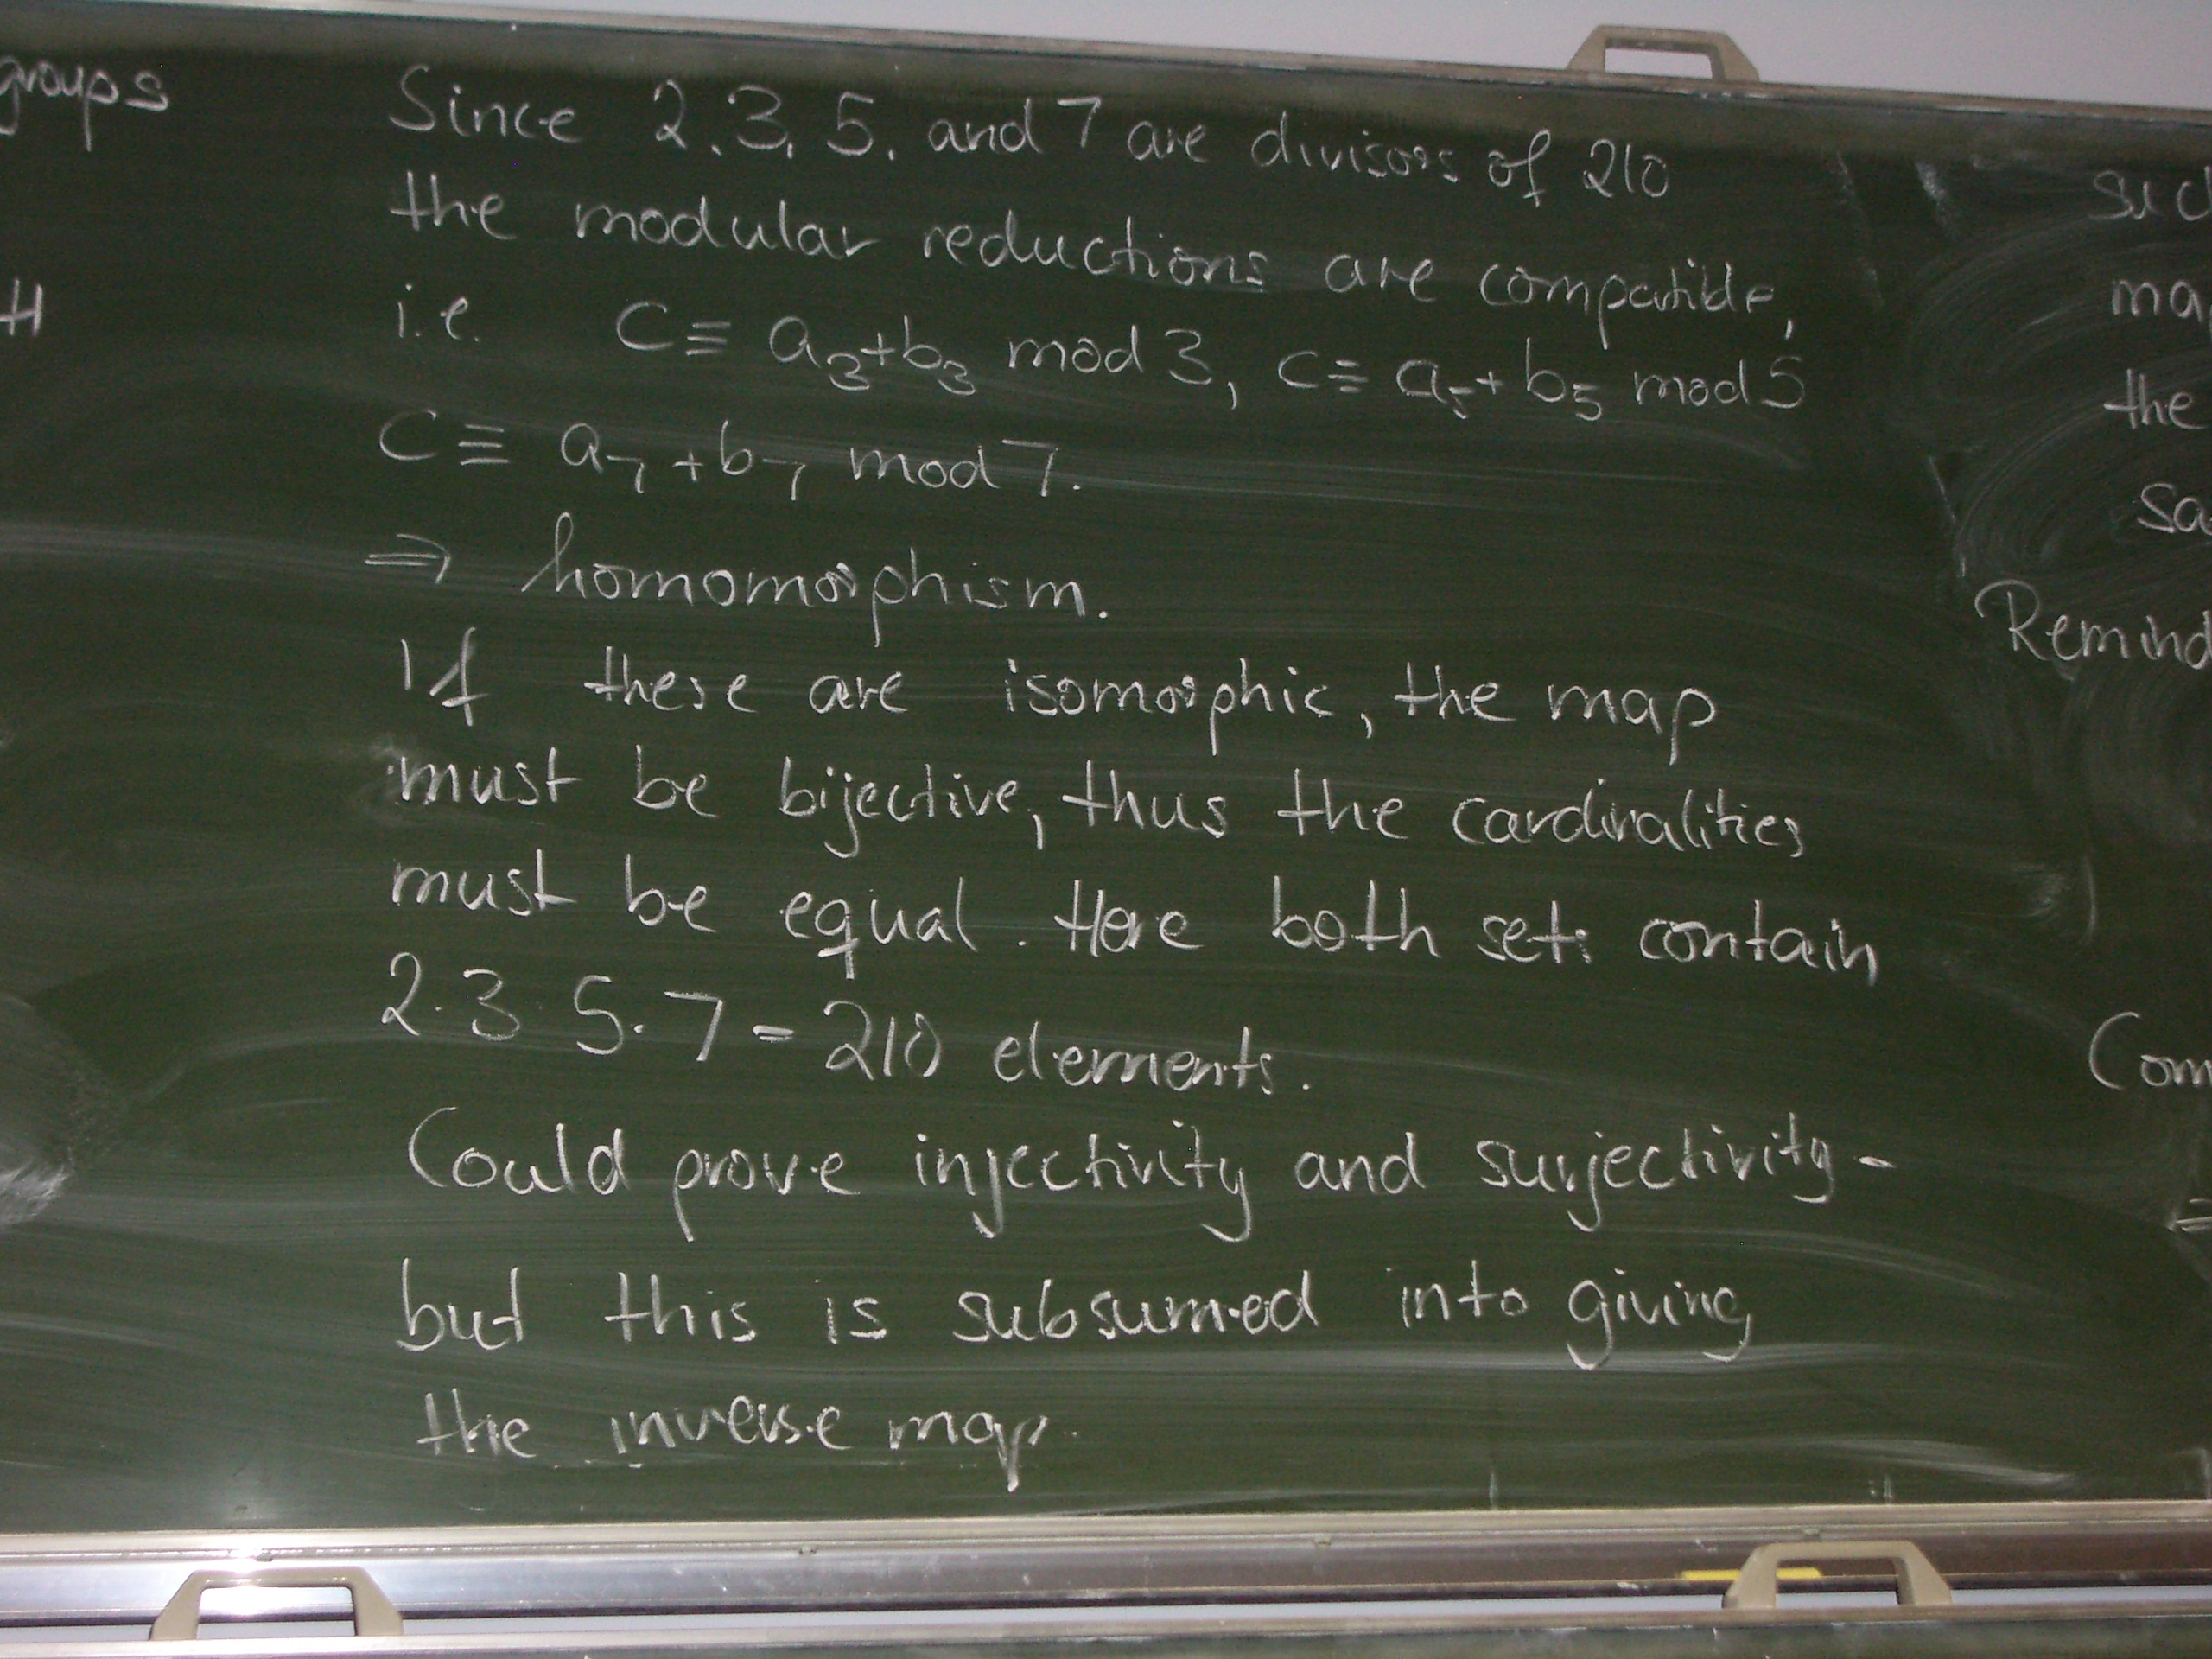 groups
H
Since 2, 3, 5, and 7 are divisors of 210
the modular reductions are compatible,
i.e. C ≡ a₃+b₃ mod 3, C ≡ a₅+b₅ mod 5
C ≡ a₇+b₇ mod 7.
⇒ homomorphism.
If these are isomorphic, the map
must be bijective, thus the cardinalities
must be equal. Here both sets contain
2·3·5·7 = 210 elements.
Could prove injectivity and surjectivity -
but this is subsumed into giving
the inverse map.
the
Remind
Com